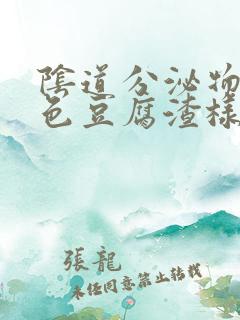 陰道分泌物
色豆腐渣樣
張龍
未经同意禁止转载